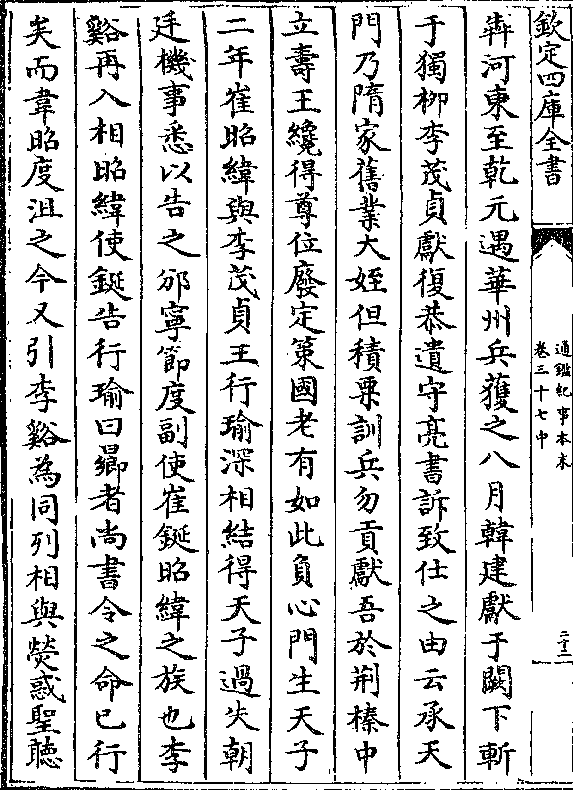 欽定四庫全書
通鑑紀事本末
卷三十七中
二十三
犇河東至乾元遇華州兵獲之八月韓建獻于闕下斬
于獨栁李茂貞獻復恭遺守亮書訴致仕之由云承天
門乃隋家舊業大姪但積粟訓兵勿貢獻吾於荆榛中
立壽王纔得尊位廢定策國老有如此負心門生天子
二年崔昭緯與李茂貞王行瑜深相結得天子過失朝
廷機事悉以告之邠寧節度副使崔鋋昭緯之族也李
谿再入相昭緯使鋋告行瑜曰曏者尚書令之命已行
矣而韋昭度沮之今又引李谿為同列相與熒惑聖聴